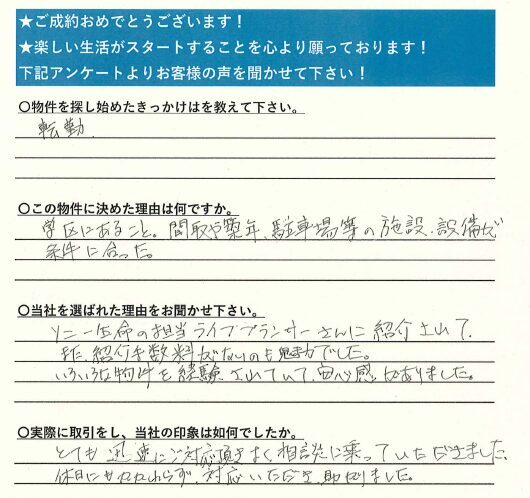 ★ご成約おめでとうございます！
★楽しい生活がスタートすることを心より願っております！
下記アンケートよりお客様の声を聞かせて下さい！
〇物件を探し始めたきっかけはを教えて下さい。
転勤
〇この物件に決めた理由は何ですか。
学区にあること。間取や築年、駐車場等の施設・設備が
条件に合った。
〇当社を選ばれた理由をお聞かせ下さい。
ソニー生命の担当ライフプランナーさんに紹介されて、
また、紹介手数料がないのも魅力でした。
いろいろな物件を経験されていて、安心感もありました。
〇実際に取引をし、当社の印象は如何でしたか。
とても迅速にご対応頂きよく相談に乗っていただきました、
休日にもかかわらず、対応いただき、助かりました。